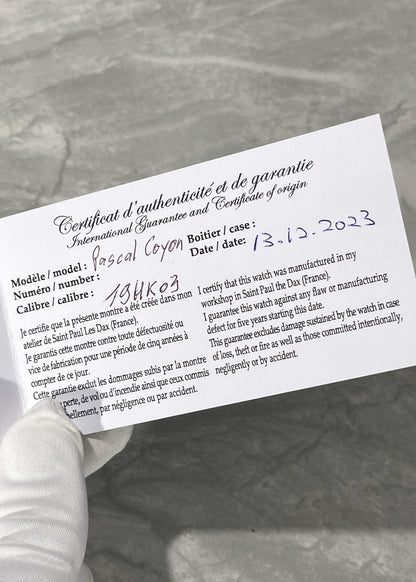 Certificat d'authenticité et de garantie
International Guarantee and Certificate of origin
Modèle / model : Pascal Coyon
Numéro / number :
Calibre / calibre : 19HK03
Boitier / case :
Date / date: 13.12.2023
Je certifie que la présente montre a été créée dans mon
atelier de Saint Paul Les Dax (France).
Je garantis cette montre contre toute défectuosité ou
vice de fabrication pour une période de cinq années à
compter de ce jour.
Cette garantie exclut les dommages subis par la montre
perte, de vol ou d'incendie ainsi que ceux commis
par négligence ou par accident.
I certify that this watch was manufactured in my
workshop in Saint Paul the Dax (France).
I guarantee this watch against any flaw or manufacturing
defect for five years starting this date.
This guarantee excludes damage sustained by the watch in case
of loss, theft or fire as well as those committed intentionally,
negligently or by accident.